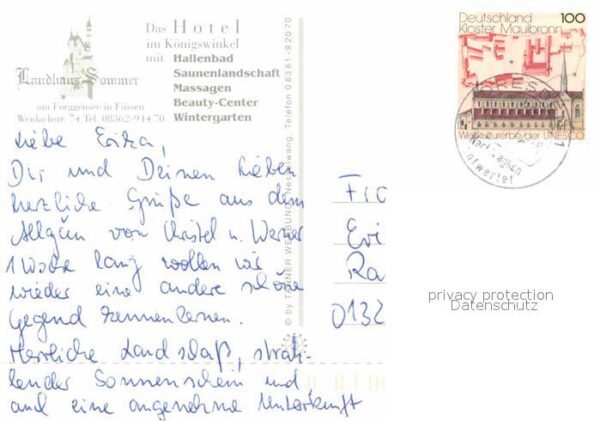 Das Hotel
im Königswinkel
mit Hallenbad
Saunenlandschaft
Massagen
Beauty-Center
Wintergarten
Landhaus Sommer
am Forggensee in Füssen
Weidachstr. 74 Tel. 08362-914 70
Deutschland 100
Kloster Maulbronn
Weltkulturerbe der UNESCO
Liebe Erika,
Dir und Deinen Lieben
herzliche Grüße aus dem
Allgäu von Christel u. Werner
1 Woche lang wollen wir
wieder eine andere schöne
Gegend kennenlernen.
Herrliche Landschaft, strah-
lender Sonnenschein und
auch eine angenehme Unterkunft
Eri
Ra
0132
Telefon 08361-92070
privacy protection
Datenschutz